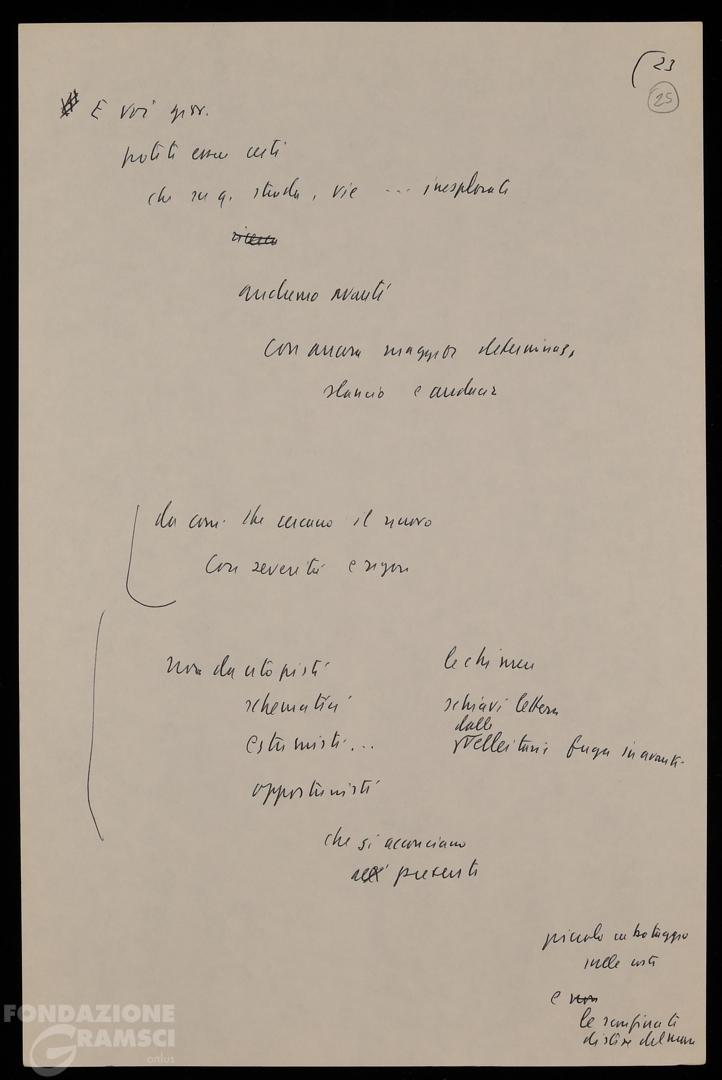 23
25
E voi giov.
potete essere certi
che su q. strada, vie ... inesplorate
andremo avanti
con ancora maggior determinaz,
slancio e audacia
da com. che cercano il nuovo
con severità e rigore
non da utopisti
schematici
estremisti...
opportunisti
che si acconciano
al presente
le chimere
schiavi lettera
dalle
velleitarie fuga in avanti
piccolo cabotaggio
sulle coste
e non
le sconfinate
distese del mare
FONDAZIONE
GRAMSCI
onlus